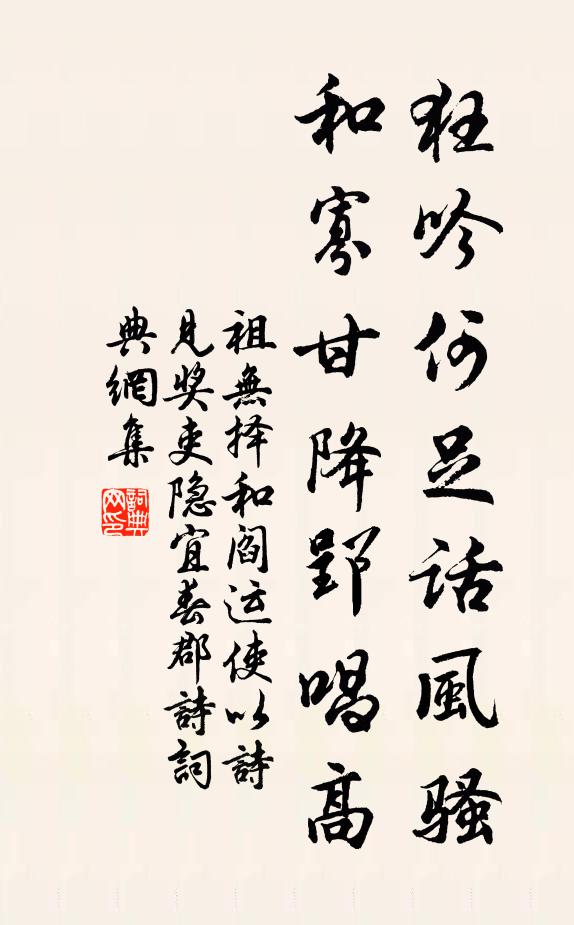 狂吟何足话風骚
和寡甘降郢唱高
祖無择和阎运使以詩
見奖吏隐宜春郡詩詞
典網集
詞典網印